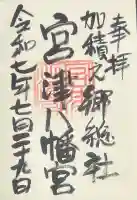 奉拝
加積郷総社
宮津八幡宮
令和七年七月二十九日